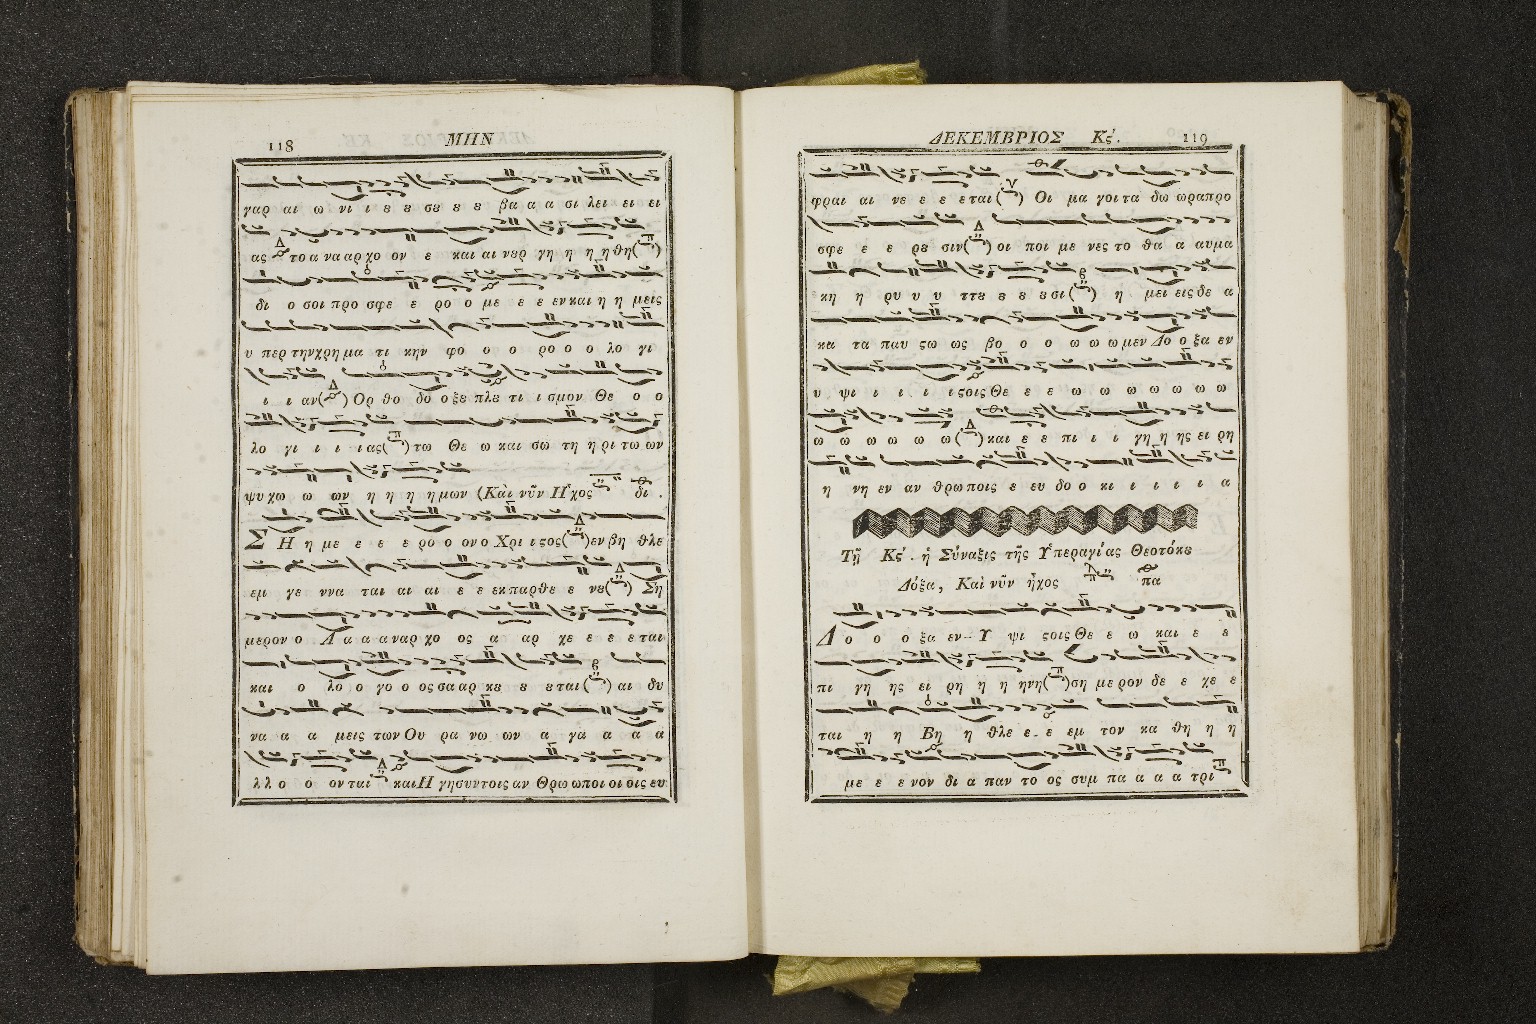 118 ΜΗΝ
γαρ αι ω νι ι ȣ ȣ σȣ ȣ ȣ βα α α σι λει ει ει
ας το α να αρ χο ον ε και αι νȣρ γη η η η θη
δι ο σοι προ σφε ε ρο ο με ε ε εν και η η μεις
υ περ την χρη μα τι κην φο ο ο ρο ο ο λο γι
ι ι αν Ορ θο δο ο ξȣ πλȣ τι ι σμον Θε ο ο
λο γι ι ι ι ας τω Θε ω και σω τη η ρι τω ων
ψυ χω ω ων η η η η μων (Καὶ νῦν Ηχος δι .
ΣΗ η με ε ε ε ρο ο ον ο Χρι ι ϛος εν βη θλε
εμ γε ννα ται αι αι ε ε εκ παρ θε ε νȣ Ση
μερον ο Α α α α ναρ χο ος α αρ χε ε ε ε ται
και ο λο ο γο ο ος σα αρ κȣ ȣ ȣ ται αι δυ
να α α μεις των Ου ρα νω ων α γα α α α
λλ ο ο ον ται και Η γη συν τοις αν Θρω ωποι οι οις ευ
ΔΕΚΕΜΒΡΙΟΣ Κϛ΄. 119
φραι αι νε ε ε ε ται Οι μα γοι τα δω ωρα προ
σφε ε ε ρȣ σιν οι ποι με νες το θα α αυμα
κη η ρυ υ υ ττȣ ȣ ȣ ȣ σι η μει εις δε α
κα τα παυ ϛω ως βο ο ο ω ω ω μεν Δο ο ξα εν
υ ψι ι ι ι ι ϛοις Θε ε ε ω ω ω ω ω ω ω
ω ω ω ω ω ω και ε ε πι ι ι γη η ης ει ρη
η νη εν αν θρω ποις ε ευ δο ο κι ι ι ι ι α
Τῇ Κϛ΄. ἡ Σύναξις τῆς Ὑπεραγίας Θεοτόκȣ
Δόξα, Καὶ νῦν ἦχος πα
Δ ο ο ο ξα εν Υ ψι ϛοις Θε ε ω και ε ε
πι γη ης ει ρη η η ηνη ση με ρον δε ε χε ε
ται η η Βη η θλε ε ε εμ τον κα θη η η
με ε ε νον δι α παν το ος συμ πα α α α τρι